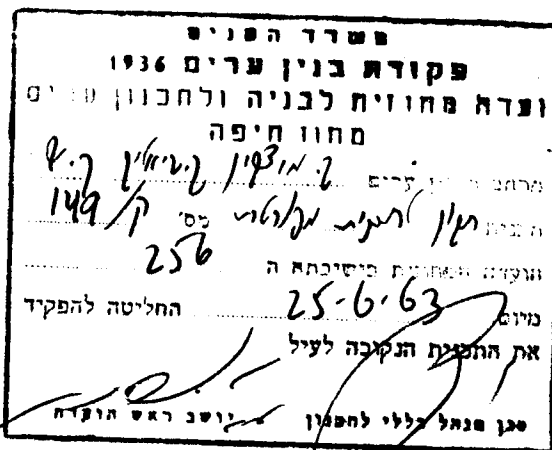 משרד הפנים
פקודת בנין ערים 1936
ועדה מחוזית לבניה ולתכנון ערים
מחוז חיפה
מרחב בנין ערים ק. מוצקין ק. ביאליק ק.
תכנית תיקון לתכנית מפורטת מס' ק/149
הועדה המחוזית בישיבתה ה 256
מיום 25-6-63 החליטה להפקיד
את התכנית הנקובה לעיל
סגן מנהל כללי לתכנון יושב ראש הועדה